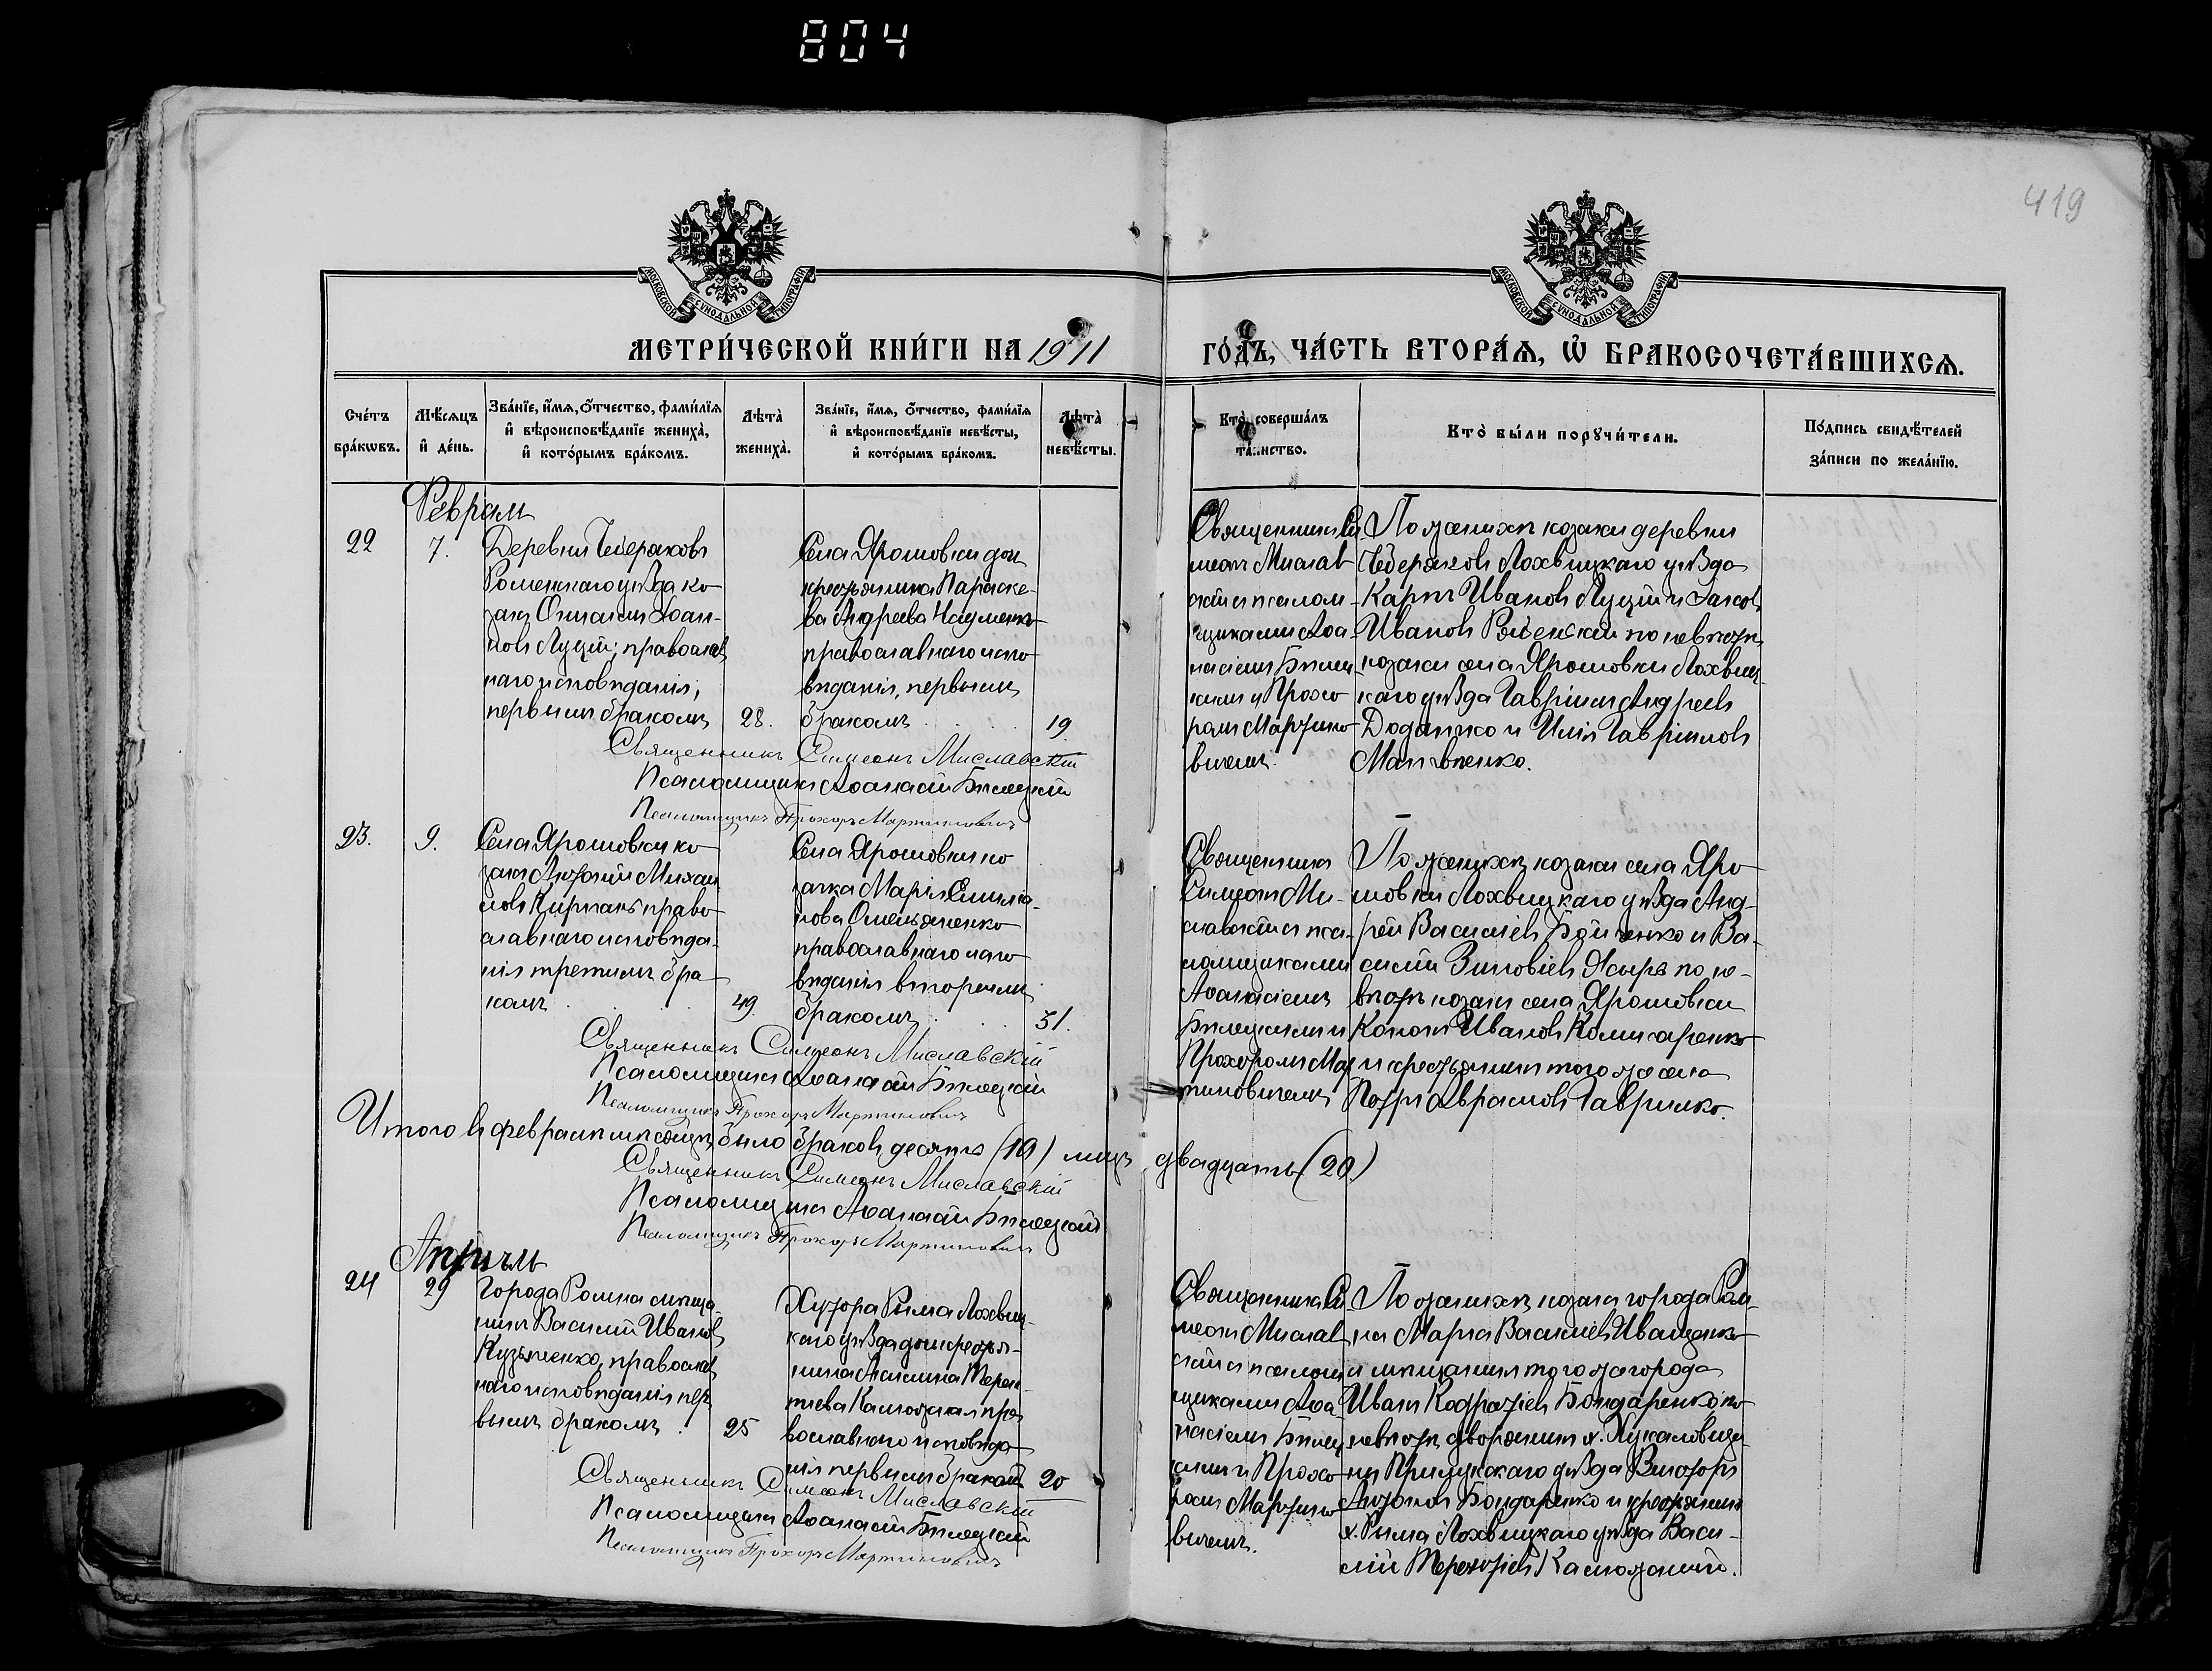 804
419
МОСКОВСКОЙ СѴНОДАЛЬНОЙ ТИПОГРАФІИ
МОСКОВСКОЙ СѴНОДАЛЬНОЙ ТИПОГРАФІИ
МЕТРИ́ЧЕСКОЙ КНИ́ГИ НА 1911
ГО́ДЪ, ЧА́СТЬ ВТОРА́Ѧ, Ѡ҆ БРАКОСОЧЕТА́ВШИХСѦ.
Сче́тъ бра́кѡвъ.
Мѣ́сяцъ и҆ де́нь.
Зва́нїе, и҆́мѧ, ѻ҆́тчество, фами́лїѧ и҆ вѣроисповѣ́данїе жениха̀, и҆ кото́рымъ бра́комъ.
Лѣта̀ жениха̀.
Зва́нїе, и҆́мѧ, ѻ҆́тчество, фами́лїѧ и҆ вѣроисповѣ́данїе невѣ́сты, и҆ кото́рымъ бра́комъ.
Лѣта̀ невѣ́сты.
Кто̀ соверша́лъ та́инство.
Кто̀ бы́ли порꙋчи́тели.
По́дпись свидѣ́телей за́писи по жела́нїю.
Февраль
22
7.
Деревни
Роменскаго уѣзда ко-
закъ Іоан-
новъ Луцій; православ
наго исповѣданія;
первымъ бракомъ
28.
Села Ярошовки дочь
крестьянина Параске-
ва Андреева Науменко
православнаго испо
вѣданія, первымъ
бракомъ
19
Священникъ Си
меонъ Мислав
скій съ псалом-
щиками Аѳа-
насіемъ Бѣлец
кимъ и Прохо
ромъ Мартино
вичемъ.
По женихѣ козаки деревни
Лохвицкаго уѣзда
Карпъ Ивановъ Луцій и Іаковъ
Ивановъ по невѣстѣ
козаки села Ярошовки Лохвиц
каго уѣзда Гавріилъ Андреевъ
и Илія Гавріиловъ
Матвѣенко.
Священникъ Симеонъ Миславскій
Псаломщикъ Аѳанасій Бѣлецкій
Псаломщикъ Прохоръ Мартиновичъ
23.
9.
Села Ярошовки ко
закъ Антоній Михаи
ловъ Кирпань право
славнаго исповѣда-
нія третимъ бра-
комъ
49.
Села Ярошовки ко
зачка Марія Емилiа-
нова Омельяненко
православнаго испо
вѣданія вторымъ
бракомъ
31.
Священникъ
Симеонъ Ми-
славскій съ пса-
ломщиками
Аѳанасіемъ
Бѣлецкимъ и
Прохоромъ Мар
тиновичемъ
По женихѣ козаки села Яро
шовки Лохвицкаго уѣзда Анд-
рей Василіевъ Бойченко и Ва-
силій Зиновіевъ Ясырь по не-
вѣстѣ козаки села Ярошовки
Кононъ Ивановъ Комисаренко
и крестьянинъ того же села
Петръ Аврамовъ Гаврилко.
Священникъ Симеонъ Миславскій
Псаломщикъ Аѳанасій Бѣлецкій
Псаломщикъ Прохоръ Мартиновичъ
Итого въ февралѣ мѣсяцѣ было браковъ десять (10) лицъ двадцать (20.)
Священникъ Симеонъ Миславскій
Псаломщикъ Аѳанасій Бѣлецкій
Псаломщикъ Прохоръ Мартиновичъ
Апрѣль
24
29
Города Ромна мѣща-
нинъ Василій Ивановъ
Кузьменко, православ
наго исповѣданія пер
вымъ бракомъ
25
Хутора Рыма Лохвиц-
каго уѣзда дочь крестья-
нина Акилина Терен-
тіева пра
вославнаго исповѣда
нія первымъ бракомъ
20
Священника Си
меонъ Мислав
скій съ псалом
щиками Аѳа
насіемъ Бѣлец
кимъ и Прохо
ромъ Мартино
вичемъ.
По женихѣ козакъ города Ром-
на Маркъ Василіевъ Иващенко
и мѣщанинъ того же города
Иванъ Кодратіевъ Бондаренко по
невѣстѣ дворянинъ х.
Прилукскаго уѣзда Викторъ
Антоновъ Бондаренко и крестьянинъ
х. Рыма Лохвицкаго уѣзда Васи-
лій Терентіевъ
Священникъ Симеонъ Миславскій
Псаломщикъ Аѳанасій Бѣлецкій
Псаломщикъ Прохоръ Мартиновичъ